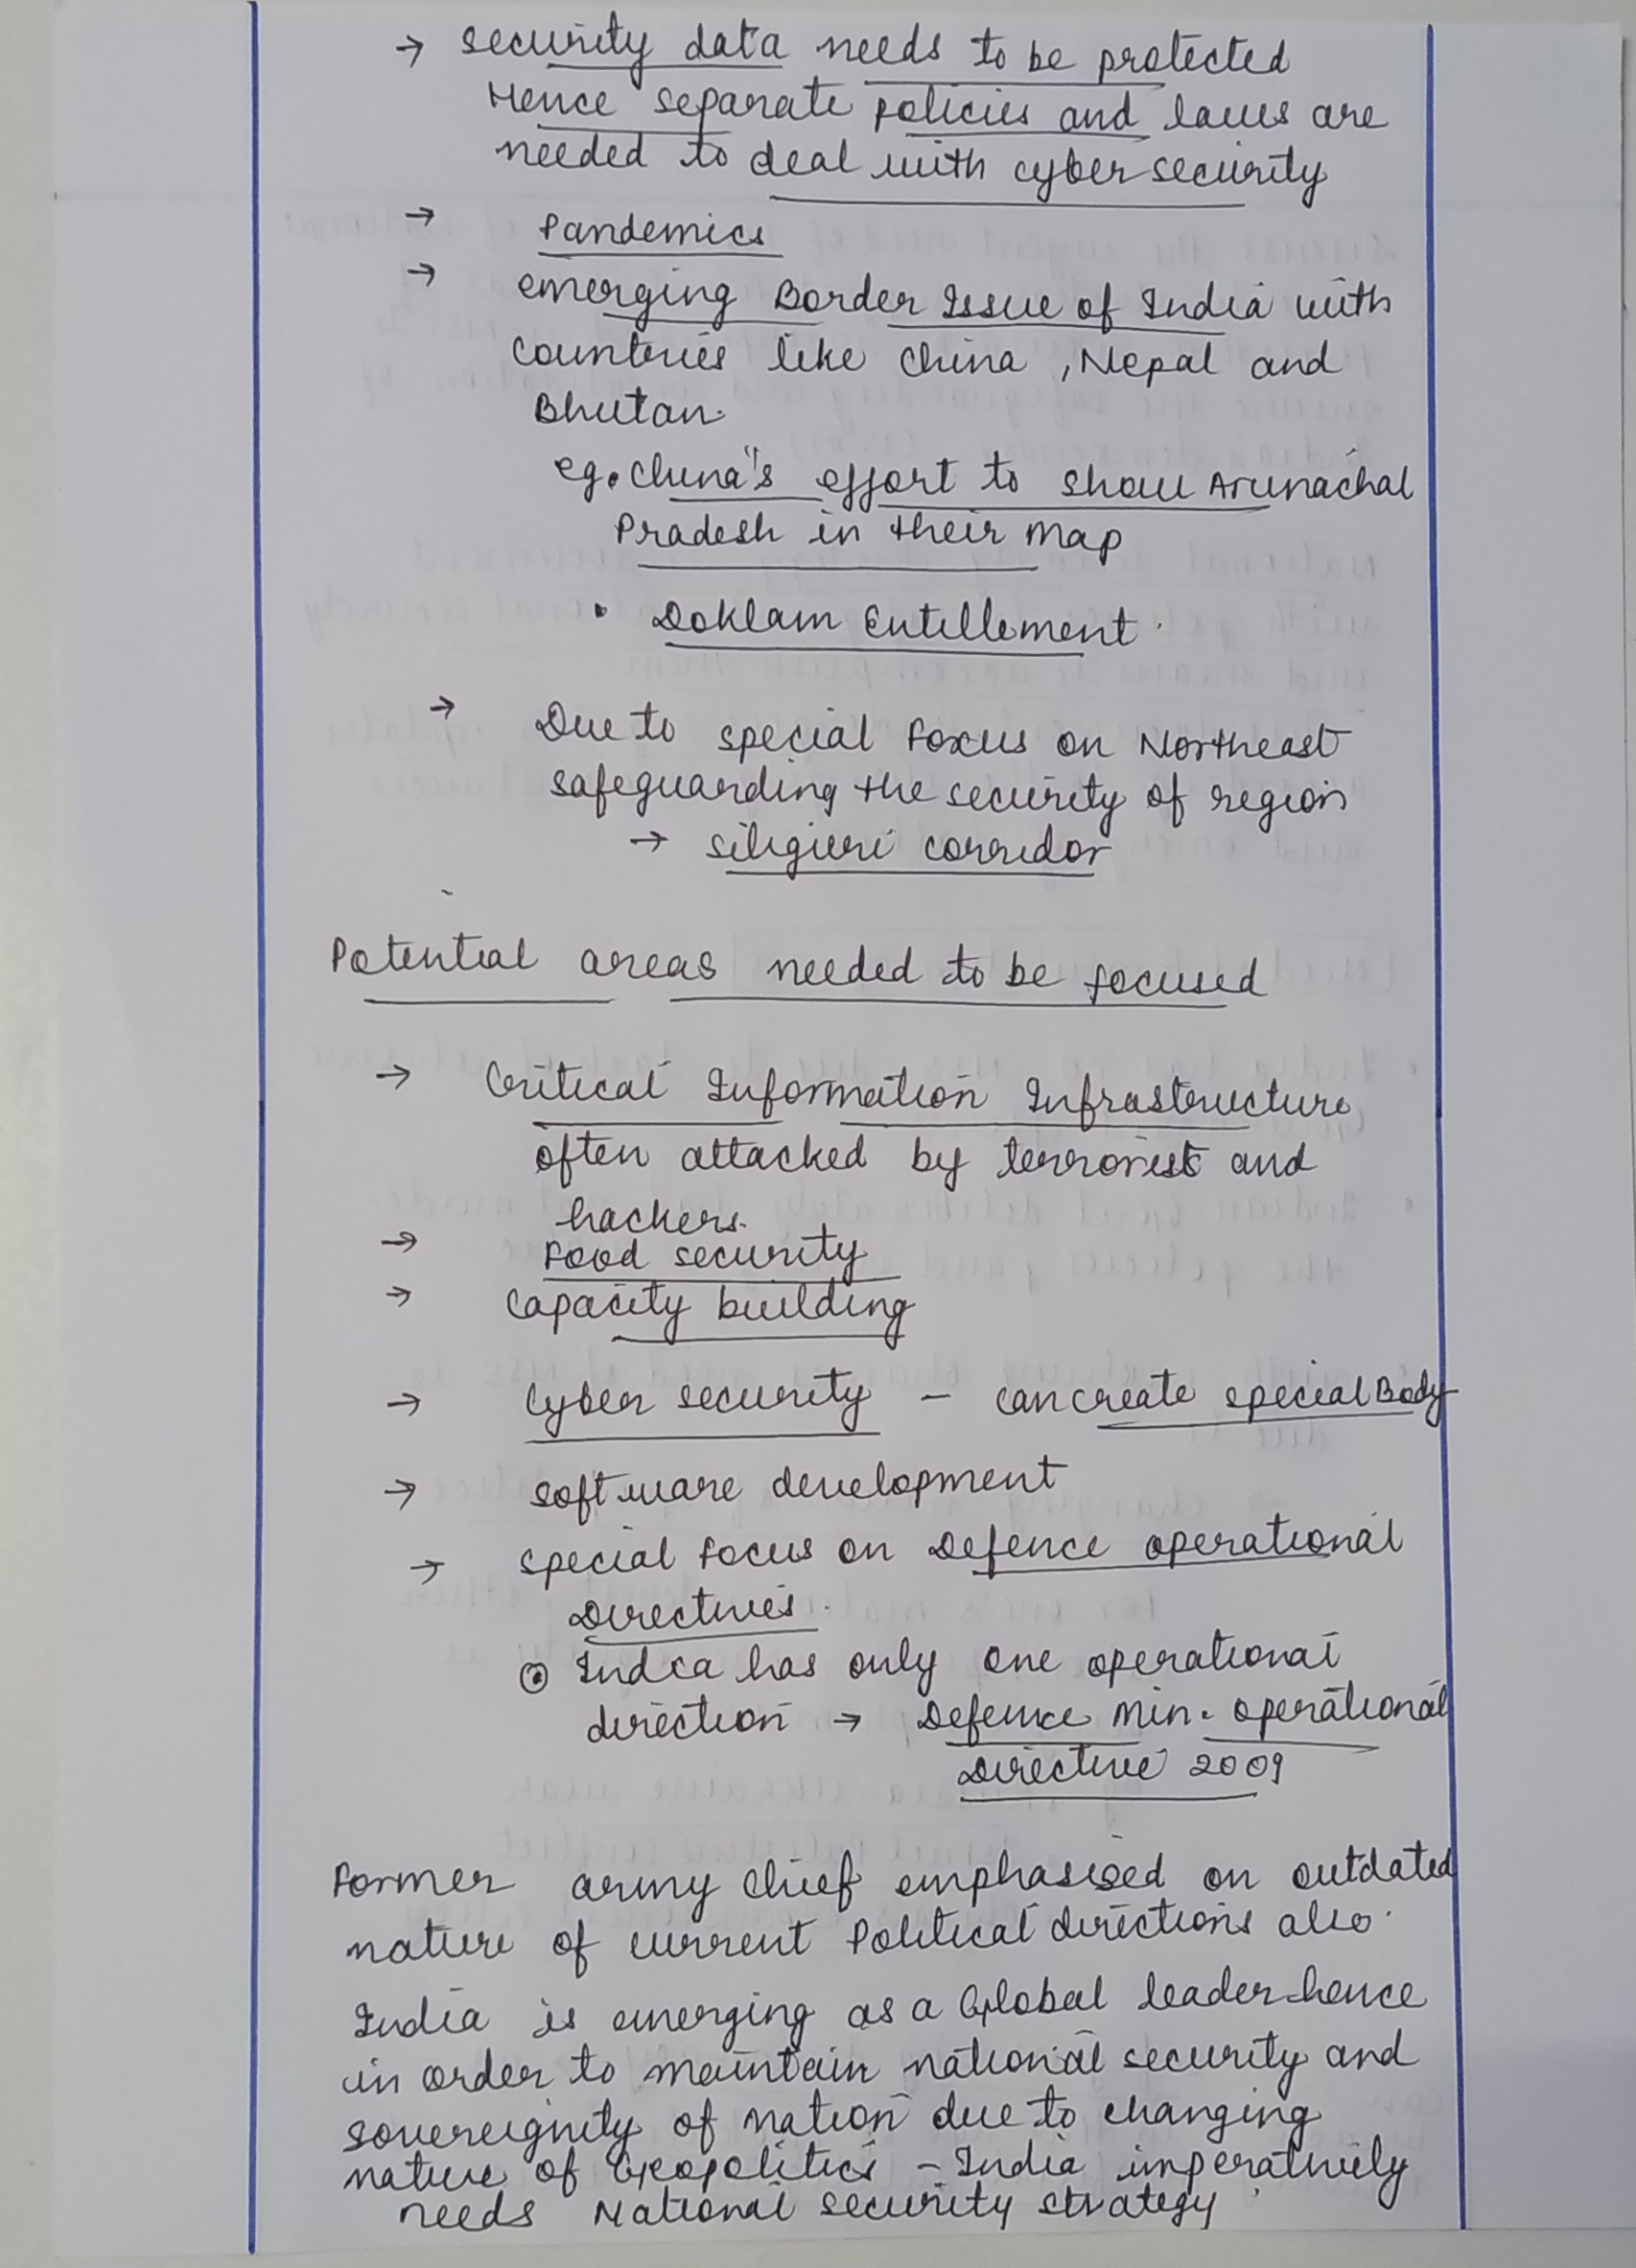 → security data needs to be protected
Hence separate policies and laws are
needed to deal with cyber security
→ Pandemics
→ emerging Border Issue of India with
countries like China, Nepal and
Bhutan.
eg. China's effort to show Arunachal
Pradesh in their map
• Doklam Entellement.
→ Due to special focus on Northeast
safeguarding the security of region
→ siliguri corridor
Potential areas needed to be focused
→ Critical Information Infrastructure
often attacked by terrorist and
hackers.
→ Food security
→ capacity building
→ Cyber security - can create special Body
→ software development
→ special focus on Defence operational
Directives.
⊙ India has only one operational
direction → Defence Min. operational
Directive 2009
Former army chief emphasised on outdated
nature of current Political directions also.
India is emerging as a Global leader-hence
in order to maintain national security and
sovereignity of nation due to changing
nature of Geopolitics - India imperatively
needs National security strategy.